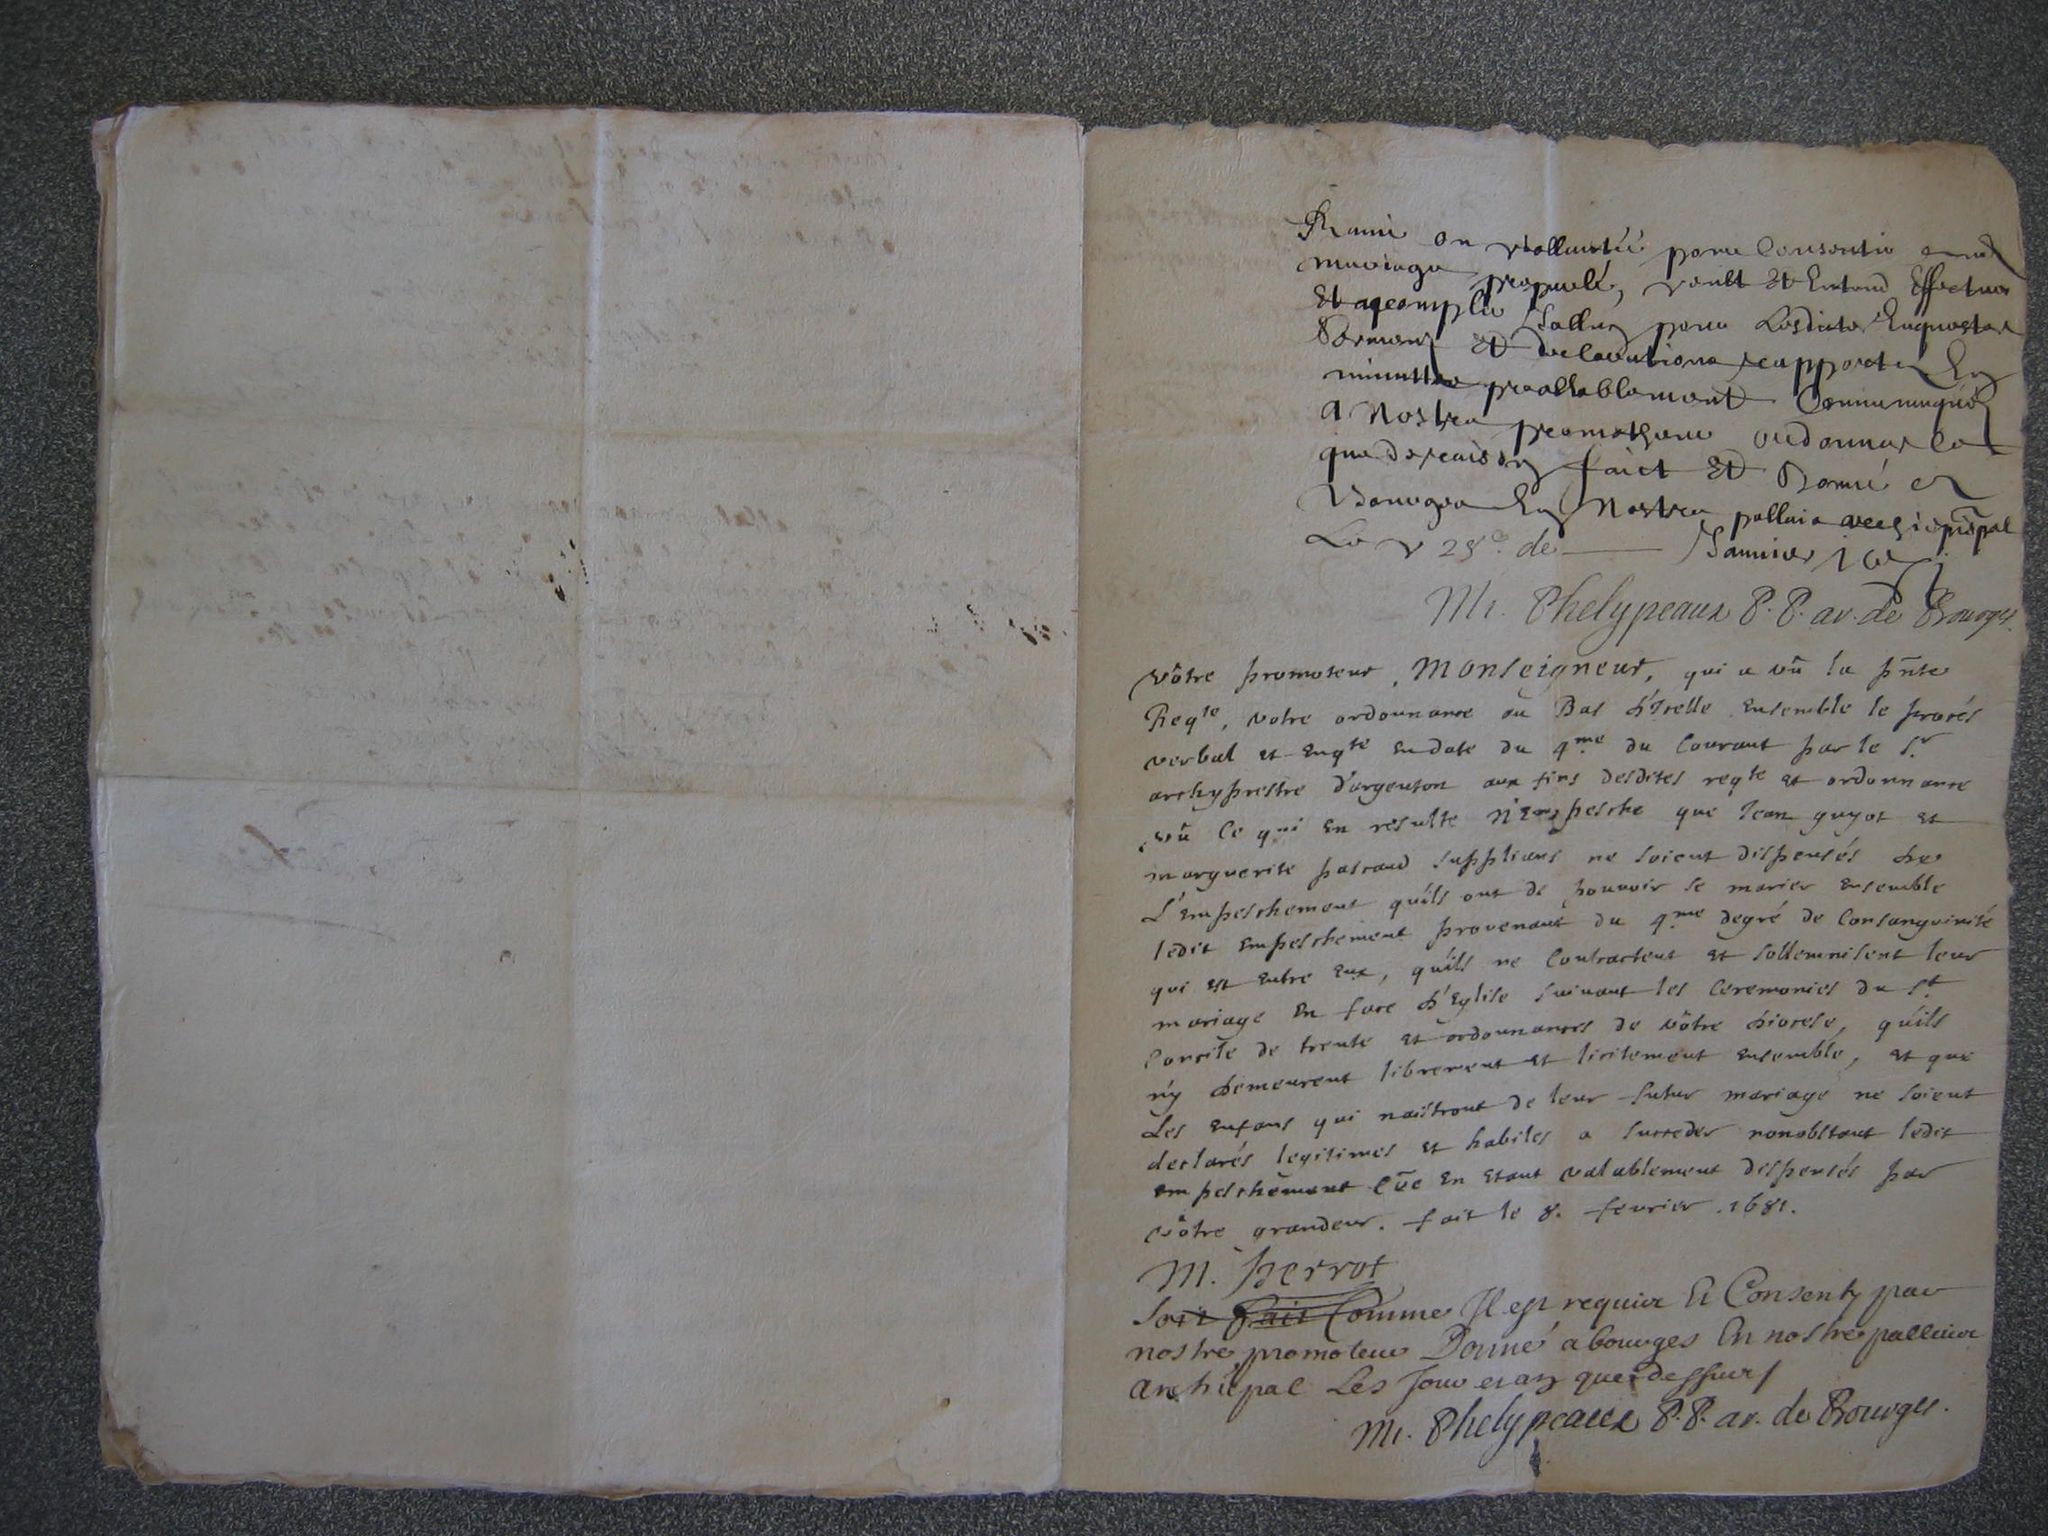 mariage veult et Entend Effectuer
Et accomplir pour Lesdictes Enquestes
et declarations rapportez En
minutte preallablement Communiquéz
A Nostre promotheur ordonner ce
que de raison faict et Donné a
Bourges En Nostre pallais archiepiscpal
Le 28e. de Janvier
Mi. Phelypeaux P. P. ar. de Bourges.
vôtre promoteur, Monseigneur, qui a vû la pñte
Reqte, votre ordonnance au Bas d'Icelle Ensemble le procés
verbal et Enqte En date du 4me du Courant par le Sr
archyprestre d'argenton aux fins desdites reqte et ordonnance
vû Ce qui En resulte n'Empesche que Jean guyot et
marguerite pascaud supplians ne soient dispensés de
L'Empeschement quils ont de pouvoir se marier Ensemble
ledit Empeschement provenant du 4me degré de Consanguinité
qui est Entre Eux, quils ne Contractent et sollemnisent leur
mariage En face d'Eglise suivant les Ceremonies du St
Concile de trente et ordonnances de vôtre diocese, quils
n'y demeurent librement et licitement Ensemble, et que
Les Enfans qui naistront de leur futur mariage ne soient
declarés legitimes et habiles a succeder nonobstant ledit
empeschement En Etant valablement dispensés par
vôtre grandeur. fait le 8. fevrier. 1681.
M. perrot
Soit fait Comme Il est requis Et Consenty par
nostre promoteur Donné a bourges En nostre pallais
archiépal Les Jour et an que dessus
Mi. Phelypeaux P. P. ar. de Bourges.